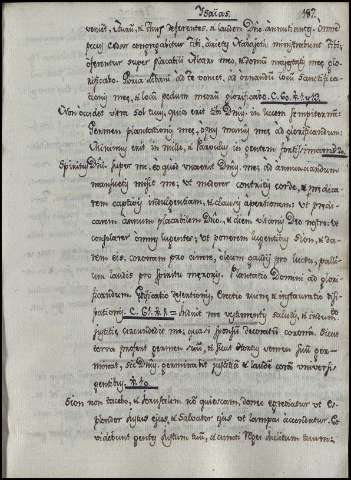 Isaias. 187.
venient, Aurum, & Thus deferentes, & laudem Dño annuntiantes. Omne
pecus Cedar congregabitur tibi, arietes Nabajoth ministrabunt tibi,
offerentur super placabili Altari meo, & domum majestatis meæ glo-
rificabo. Gloria Libani ad te veniet, ad ornandum locum sanctifica-
tionis meæ, & locum pedum meorum glorificabo. C. 60.
Non occidet ultra Sol tuus, quia erit tibi Dñus in lucem sempiternam
Germen plantationis meæ, opus manus meæ ad glorificandum:
Minimus erit in mille, & Parvulus in gentem fortissimam
Spiritus Dñi super me, eo quod unxerit Dñus me, ad annunciandum
mansuetis misit me, ut mederer contritis corde, & prædicarem
captivis indulgentiam, & clausis apertionem, ut prædi-
carem annum placabilem Dño, & diem ultionis Deo nostro: ut
consolarer omnes lugentes, ut ponerem lugentibus Sion, & da-
rem eis coronam pro cinere, oleum gaudii pro luctu, palli-
um laudis pro spiritu mæroris. Plantatio Domini ad glori-
ficandum
C. 61. induit me vestimentis salutis, & indumen.
justitiæ circumdedit me, quasi sponsum decoratum corona. Sicut
terra profert germen suum, & sicut hortus semen suum ger-
minat, sic Dñus germinabit justitiam & laudem coram universis
gentibus
Sion non tacebo, & Jerusalem non quiescam, donec egrediatur ut s-
plendor Justus ejus, & Salvator ejus ut lampas accendatur. Et
videbunt gentes Justum tuum, & cuncti Reges inclitum tuum: